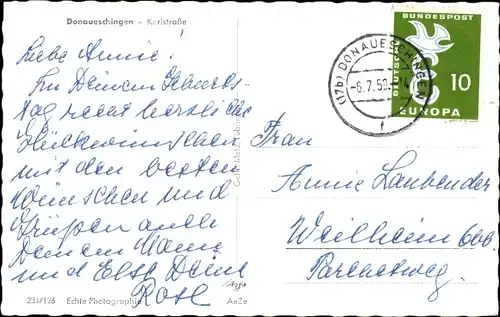 Donaueschingen – Karlstraße
Liebe Annie!
Zu Deinem Geburts-
tag recht herzliche
Glückwünschen
mit den besten
Wünschen und
Grüßen auch
Deinem Mann
und Elst Deine
Rosl
231/126 Echte Photographie AeZe
(17b) DONAUESCHINGEN
-6.7.59
f
DEUTSCHE
BUNDESPOST
10
EUROPA
Frau
Annie Laubender
Weilheim Obb